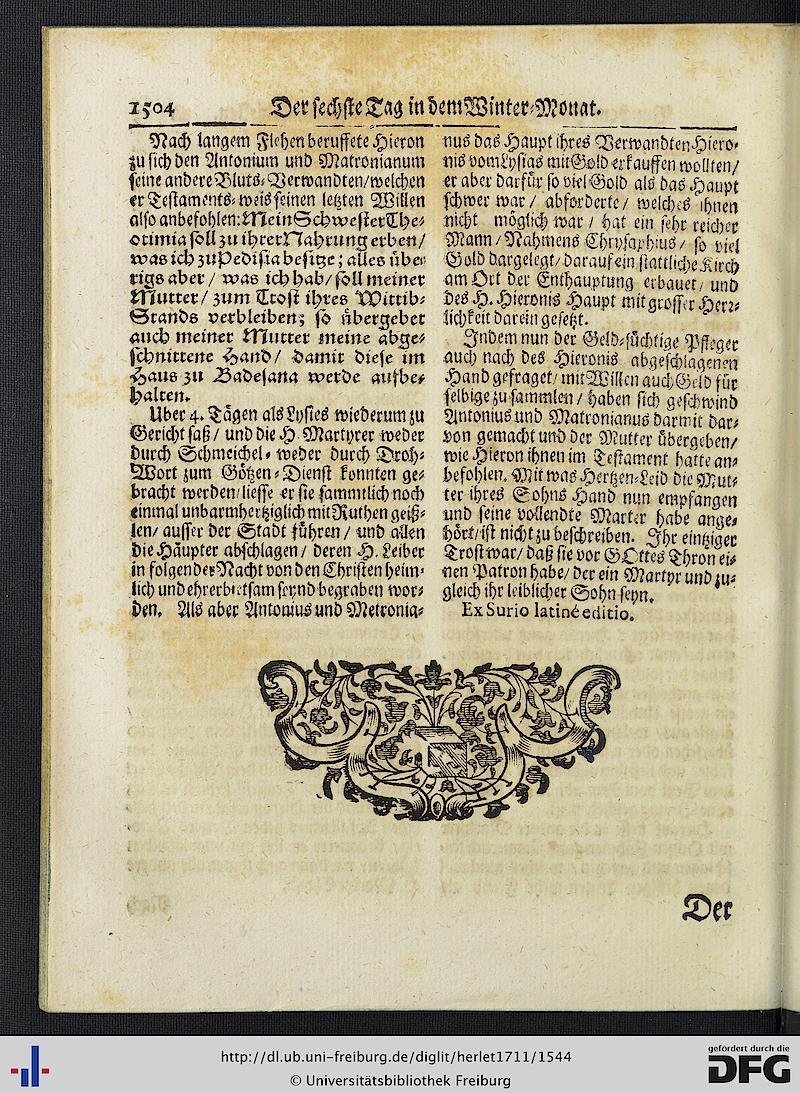 1504 Der sechste Tag in dem Winter-Monat.
Nach langem Flehen beruffete Hieron
zu sich den Antonium und Matronianum
seine andere Bluts-Verwandten/welchen
er Testaments-weis seinen letzten Willen
also anbefohlen: Mein Schwester The-
otimia soll zu ihrer Nahrung erben/
was ich zu Pedisia besitze; alles übe-
rigs aber/ was ich hab/ soll meiner
Mutter/ zum Trost ihres Wittib-
Stands verbleiben; so übergebet
auch meiner Mutter meine abge-
schnittene Hand/ damit diese im
Haus zu Badesana werde aufbe-
halten.
Uber 4. Tägen als Lysies wiederum zu
Gericht saß/ und die H. Martyrer weder
durch Schmeichel- weder durch Droh-
Wort zum Götzen-Dienst konnten ge-
bracht werden/ liesse er sie sammtlich noch
einmal unbarmhertziglich mit Ruthen geiß-
len/ ausser der Stadt führen/ und allen
die Häupter abschlagen/ deren H. Leiber
in folgender Nacht von den Christen heim-
lich und ehrerbietsam seynd begraben wor-
den. Als aber Antonius und Metronia-
nus das Haupt ihres Verwandten Hiero-
nis vom Lysias mit Gold erkauffen wollten/
er aber darfür so viel Gold als das Haupt
schwer war/ abforderte/ welches ihnen
nicht möglich war/ hat ein sehr reicher
Mann/ Nahmens Chrysaphius/ so viel
Gold dargelegt/ darauf ein stattliche Kirch
am Ort der Enthauptung erbauet/ und
des H. Hieronis Haupt mit grosser Herr-
lichkeit darein gesetzt.
Indem nun der Geld-süchtige Pfleger
auch nach des Hieronis abgeschlagenen
Hand gefraget/ mit Willen auch Geld für
selbige zu sammlen/ haben sich geschwind
Antonius und Matronianus darmit dar-
von gemacht und der Mutter übergeben/
wie Hieron ihnen im Testament hatte an-
befohlen. Mit was Hertzen-Leid die Mut-
ter ihres Sohns Hand nun empfangen
und seine vollendte Marter habe ange-
hört/ ist nicht zu beschreiben. Ihr eintziger
Trost war/ daß sie vor GOttes Thron ei-
nen Patron habe/ der ein Martyr und zu-
gleich ihr leiblicher Sohn seyn.
Ex Surio latinè editio.
Der
http://dl.ub.uni-freiburg.de/diglit/herlet1711/1544
© Universitätsbibliothek Freiburg
gefördert durch die
DFG